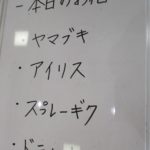 本日のお花
・ヤマブキ
・アイリス
・スプレーギク